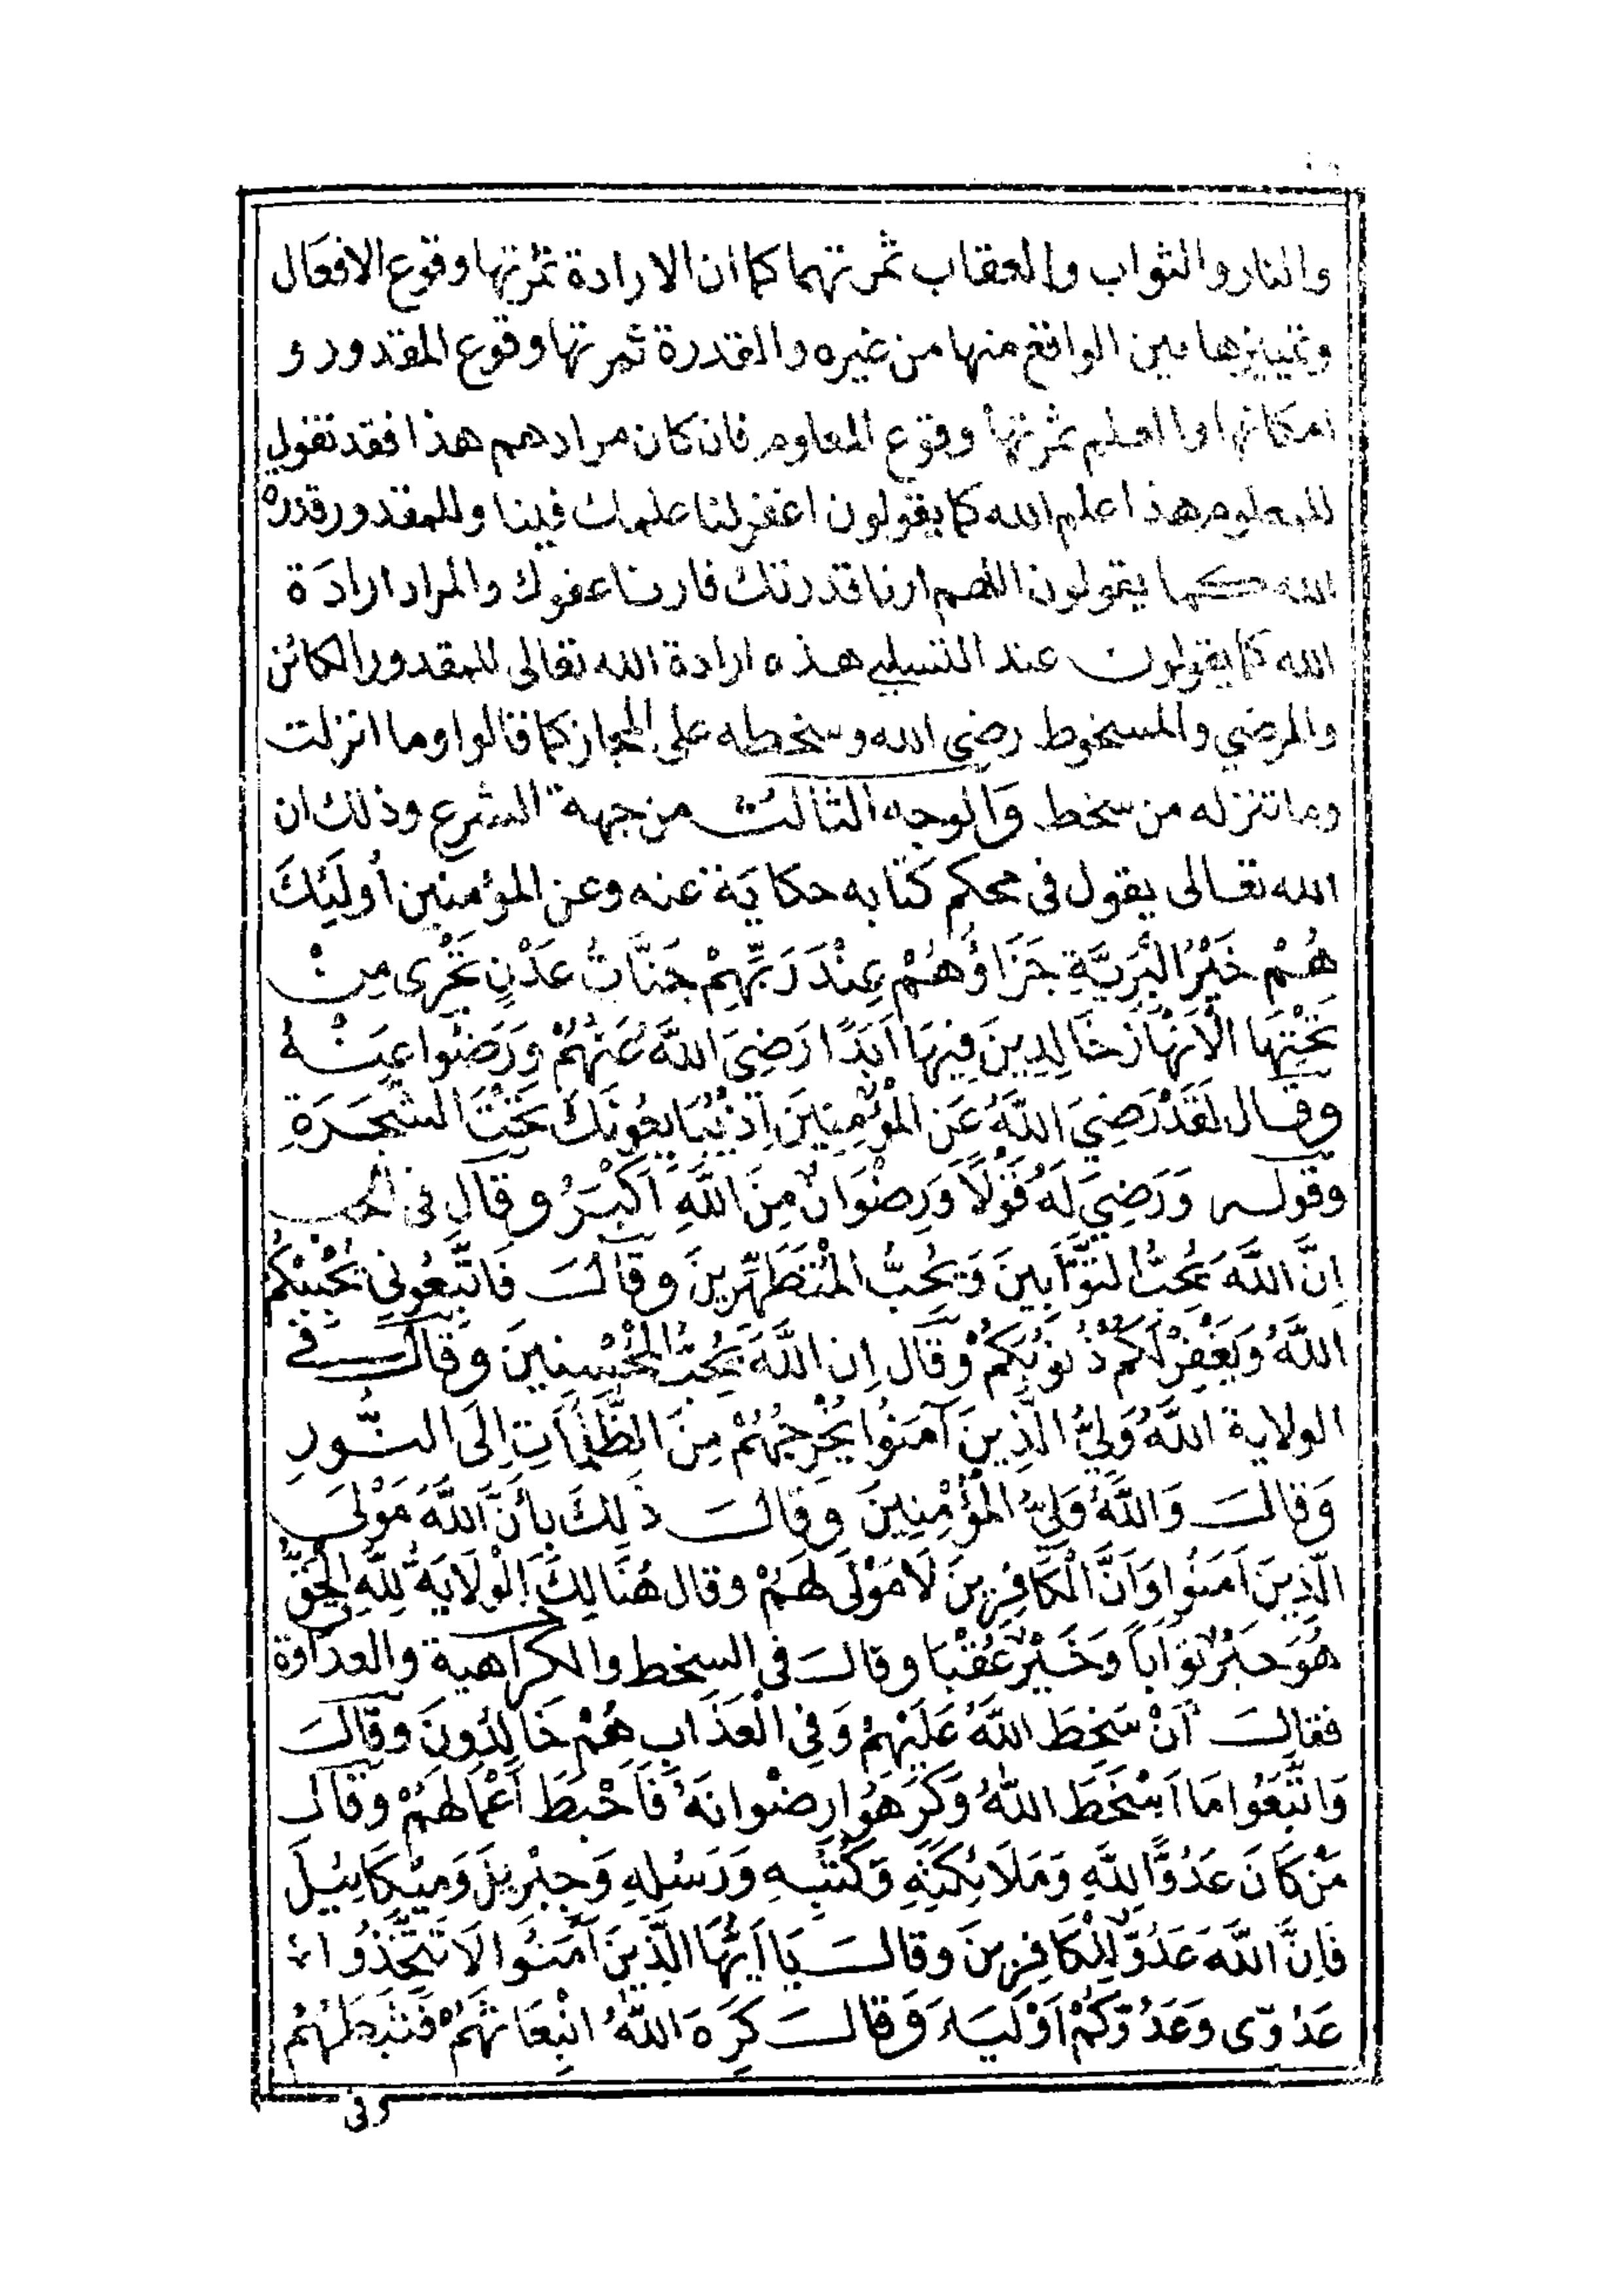 والنار والثواب والعقاب ثمرتهما كما ان الارادة ثمرتها وقوع الافعَال
وتمييزها مين الواقع منها من غيره والقدرة ثمرتها وقوع المقدور و
امكانها والعلم ثمرتها وقوع المعلوم فان كان مرادهم هذا فقد نقول
للمعلوم هذا علم الله كما يقولون اغفر لنا علمك فينا وللمقدور قدرة
الله كما يقولون اللهم ارنا قدرتك فارنا عفوك والمراد ارادَة
الله كما يقولون عند التسلي هذه ارادة الله تعالى للمقدور الكائن
والمرضي والمسخوط رضي الله وسخطه على المجاز كما قالوا وما انزلت
وما تنزله من سخط وَالوجه الثالث من جهة الشرع وذلك ان
الله تعالى يقول فى محكم كتابه حكايَة عنه وعن المؤمنين أُولَئِكَ
هُمْ خَيْرُ الْبَرِيَّةِ جَزَاؤُهُمْ عِنْدَ رَبِّهِمْ جَنَّاتُ عَدْنٍ تَجْرِى مِنْ
تَحْتِهَا الْاَنْهَارُ خَالِدِينَ فِيهَا اَبَدًا رَضِيَ اللَّهُ عَنْهُمْ وَرَضُوا عَنْهُ
وقال لَقَدْ رَضِيَ اللَّهُ عَنِ الْمُؤْمِنِينَ اِذْ يُبَايِعُونَكَ تَحْتَ الشَّجَرَةِ
وقوله وَرَضِيَ لَهُ قَوْلًا وَرِضْوَانٌ مِنَ اللَّهِ اَكْبَرُ وقال فى الحب
اِنَّ اللَّهَ يُحِبُّ التَّوَّابِينَ وَيُحِبُّ الْمُتَطَهِّرِينَ وقال فَاتَّبِعُونِي يُحْبِبْكُمُ
اللَّهُ وَيَغْفِرْ لَكُمْ ذُنُوبَكُمْ وَقَال اِن اللَّهَ يُحِبُّ الْمُحْسِنِينَ وَقال في
الولاية اللَّهُ وَلِيُّ الَّذِينَ آمَنُوا يُخْرِجُهُمْ مِنَ الظُّلُمَاتِ اِلَى النُّورِ
وَقال وَاللَّهُ وَلِيُّ الْمُؤْمِنِينَ وَقال ذَلِكَ بِأَنَّ اللَّهَ مَوْلَى
الَّذِينَ اَمَنُوا وَاَنَّ الْكَافِرِينَ لَا مَوْلَى لَهُمْ وقال هُنَالِكَ الْوِلَايَةُ لِلَّهِ الْحَقِّ
هُوَ خَيْرٌ ثَوَابًا وَخَيْرٌ عُقْبًا وقال في السخط والكراهية والعداوة
فقال اَنْ سَخِطَ اللَّهُ عَلَيْهِمْ وَفِي الْعَذَابِ هُمْ خَالِدُونَ وَقال
وَاتَّبَعُوا مَا اَسْخَطَ اللَّهُ وَكَرِهُوا رِضْوانَهُ فَاَحْبَطَ اَعْمَالَهُمْ وَقال
مَنْ كَانَ عَدُوًّا لِلَّهِ وَمَلَائِكَتِهِ وَكُتُبِهِ وَرَسُلِهِ وَجِبْرِيلَ وَمِيكَائِيلَ
فَاِنَّ اللَّهَ عَدُوٌّ لِلْكَافِرِينَ وقال يَا اَيُّهَا الَّذِينَ آمَنُوا لَا تَتَّخِذُوا
عَدُوّى وَعَدُوَّكُمْ اَوْلِيَاءَ وَقال كَرِهَ اللَّهُ انْبِعَاثَهُمْ فَثَبَّطَهُمْ
وفى